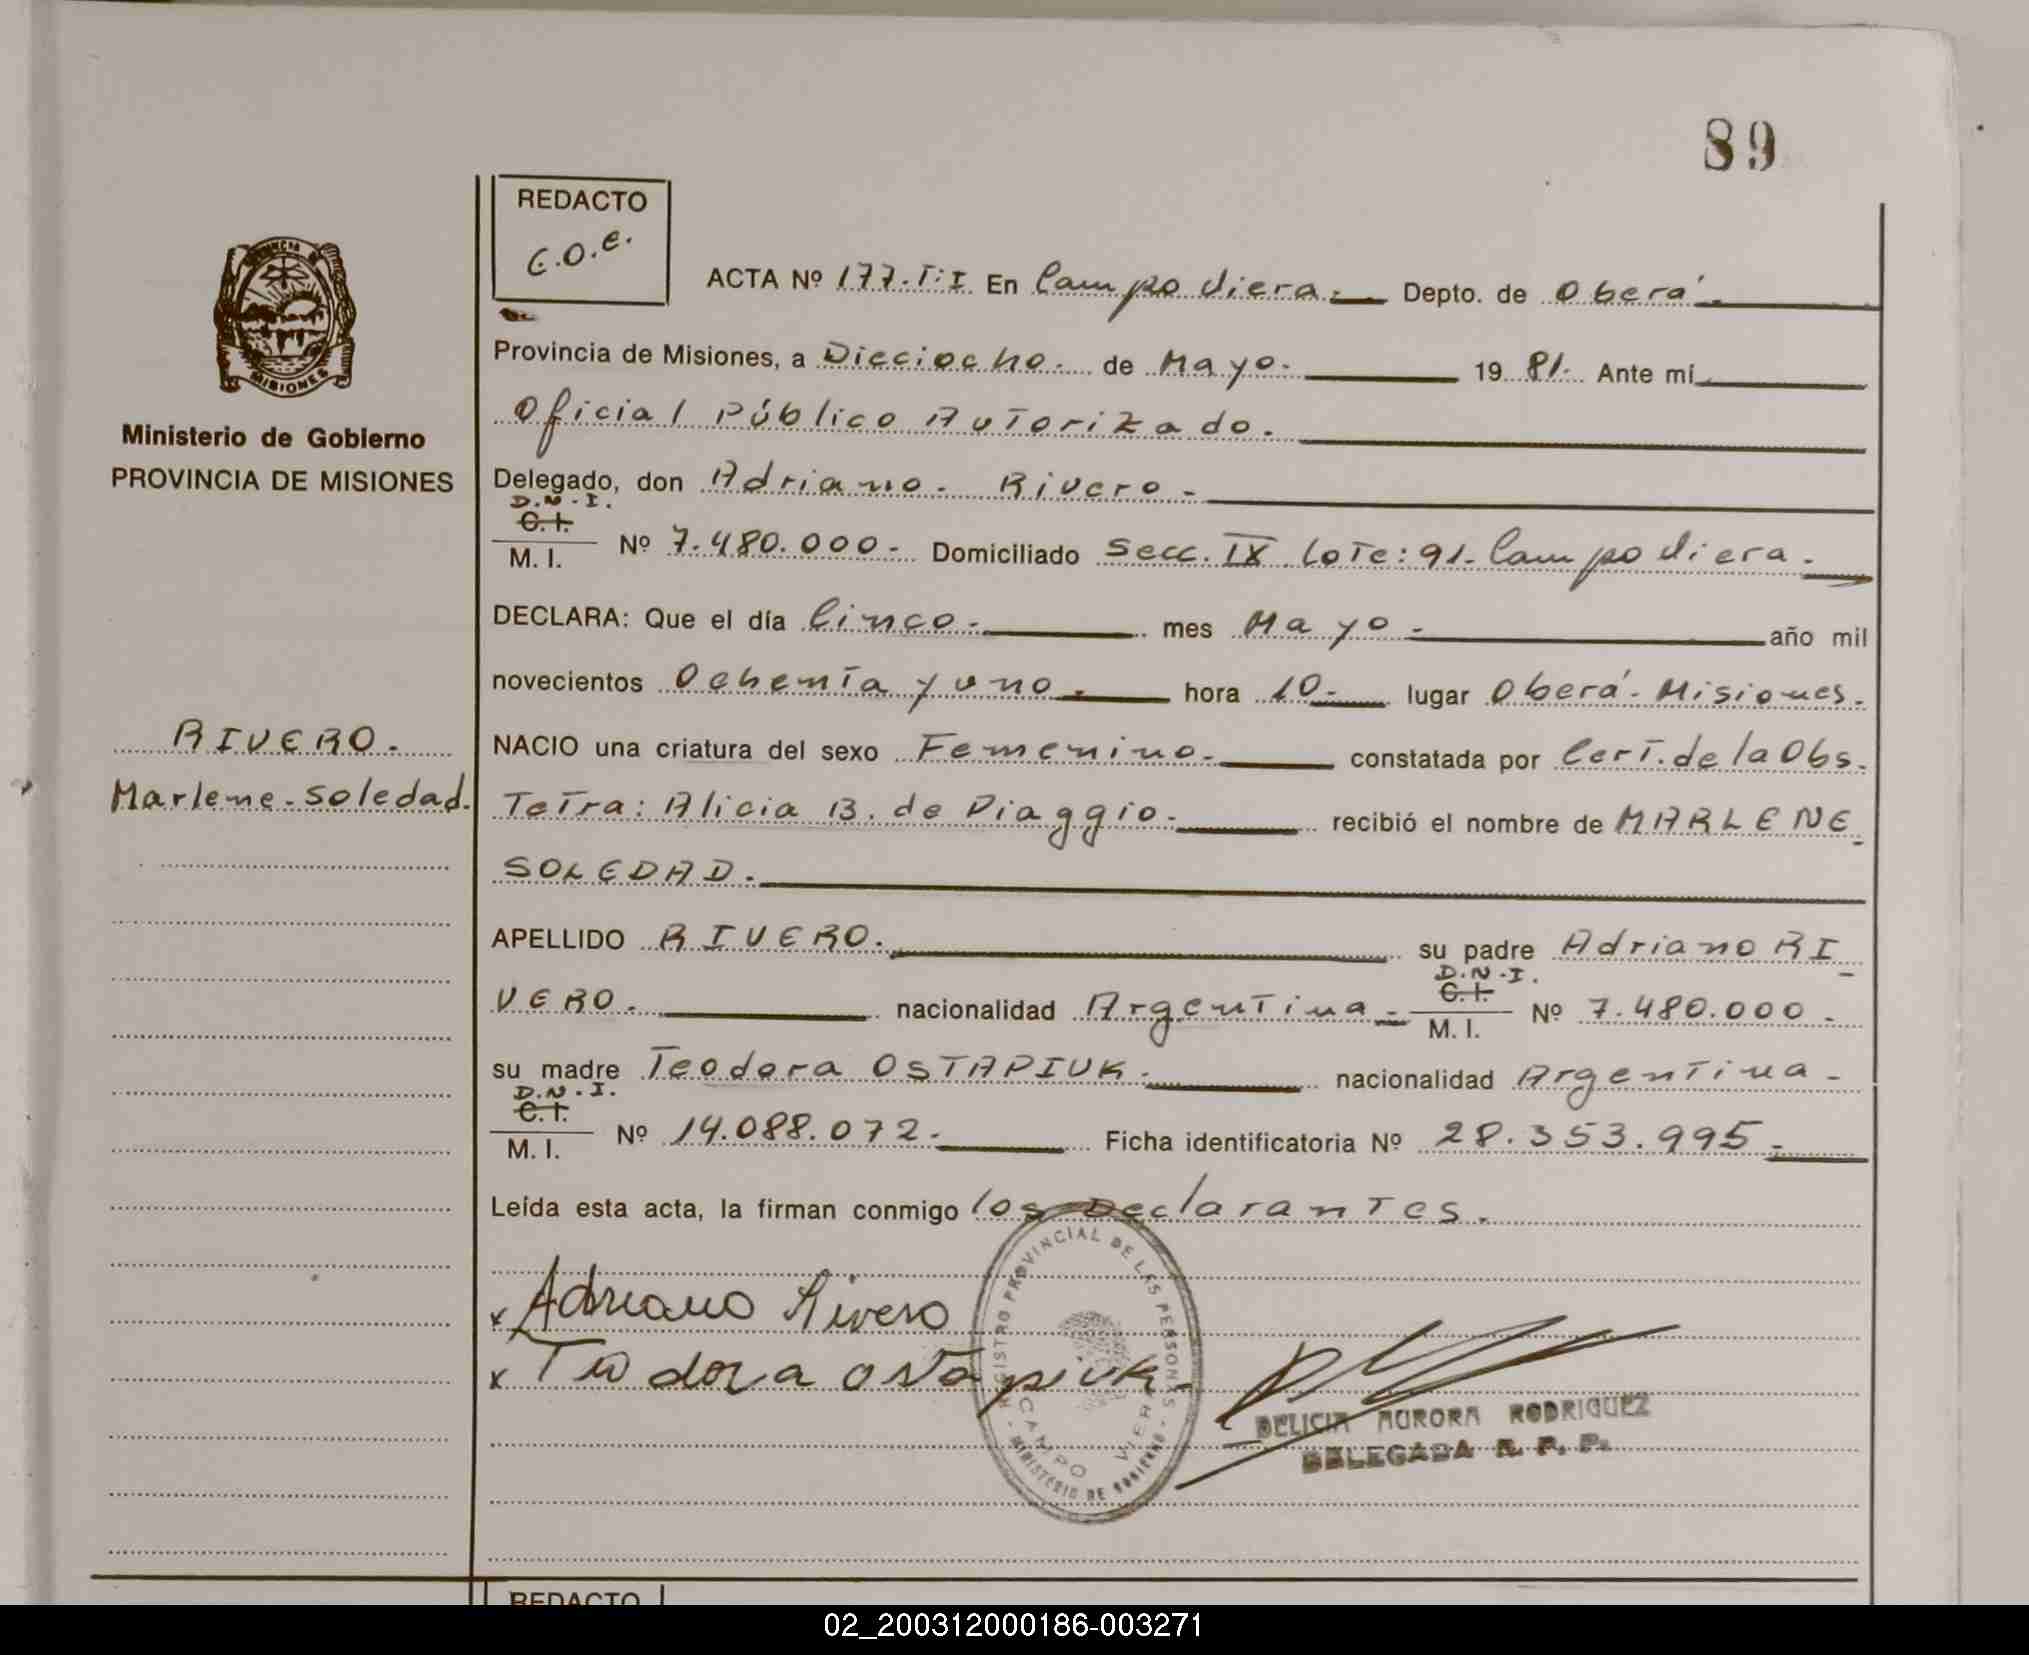 89
REDACTO
C.O.e.
ACTA Nº 177.T:I En Campo Viera.- Depto. de Oberá.
Provincia de Misiones, a Dieciocho. de Mayo. 19 81. Ante mí
Oficial Público Autorizado.
Delegado, don Adriano. Rivero -
D.N.I.
C.I.
M. I. Nº 7.480.000- Domiciliado Secc. IX Lote: 91. Campo Viera.
DECLARA: Que el día Cinco- mes Mayo- año mil
novecientos Ochenta y uno. hora 10- lugar Oberá-Misiones.
NACIO una criatura del sexo Femenino. constatada por Cert. de la Obs-
Tetra: Alicia B. de Piaggio. recibió el nombre de MARLENE
SOLEDAD.
APELLIDO RIVERO. su padre Adriano RI-
VERO. nacionalidad Argentina- D.N.I.
C.I.
M. I. Nº 7.480.000-
su madre Teodora OSTAPIUK. nacionalidad Argentina-
D.N.I.
C.I.
M. I. Nº 14.088.072- Ficha identificatoria Nº 28.353.995-
Leída esta acta, la firman conmigo los Declarantes.
x Adriano Rivero
x Teodora ostapiuk
REGISTRO PROVINCIAL DE LAS PERSONAS
CAMPO VIERA
- MINISTERIO DE GOBIERNO -
DELICIA AURORA RODRIGUEZ
DELEGADA R. P. P.
PROVINCIA DE
MISIONES
Ministerio de Gobierno
PROVINCIA DE MISIONES
RIVERO.
Marlene-Soledad.
REDACTO
02_200312000186-003271